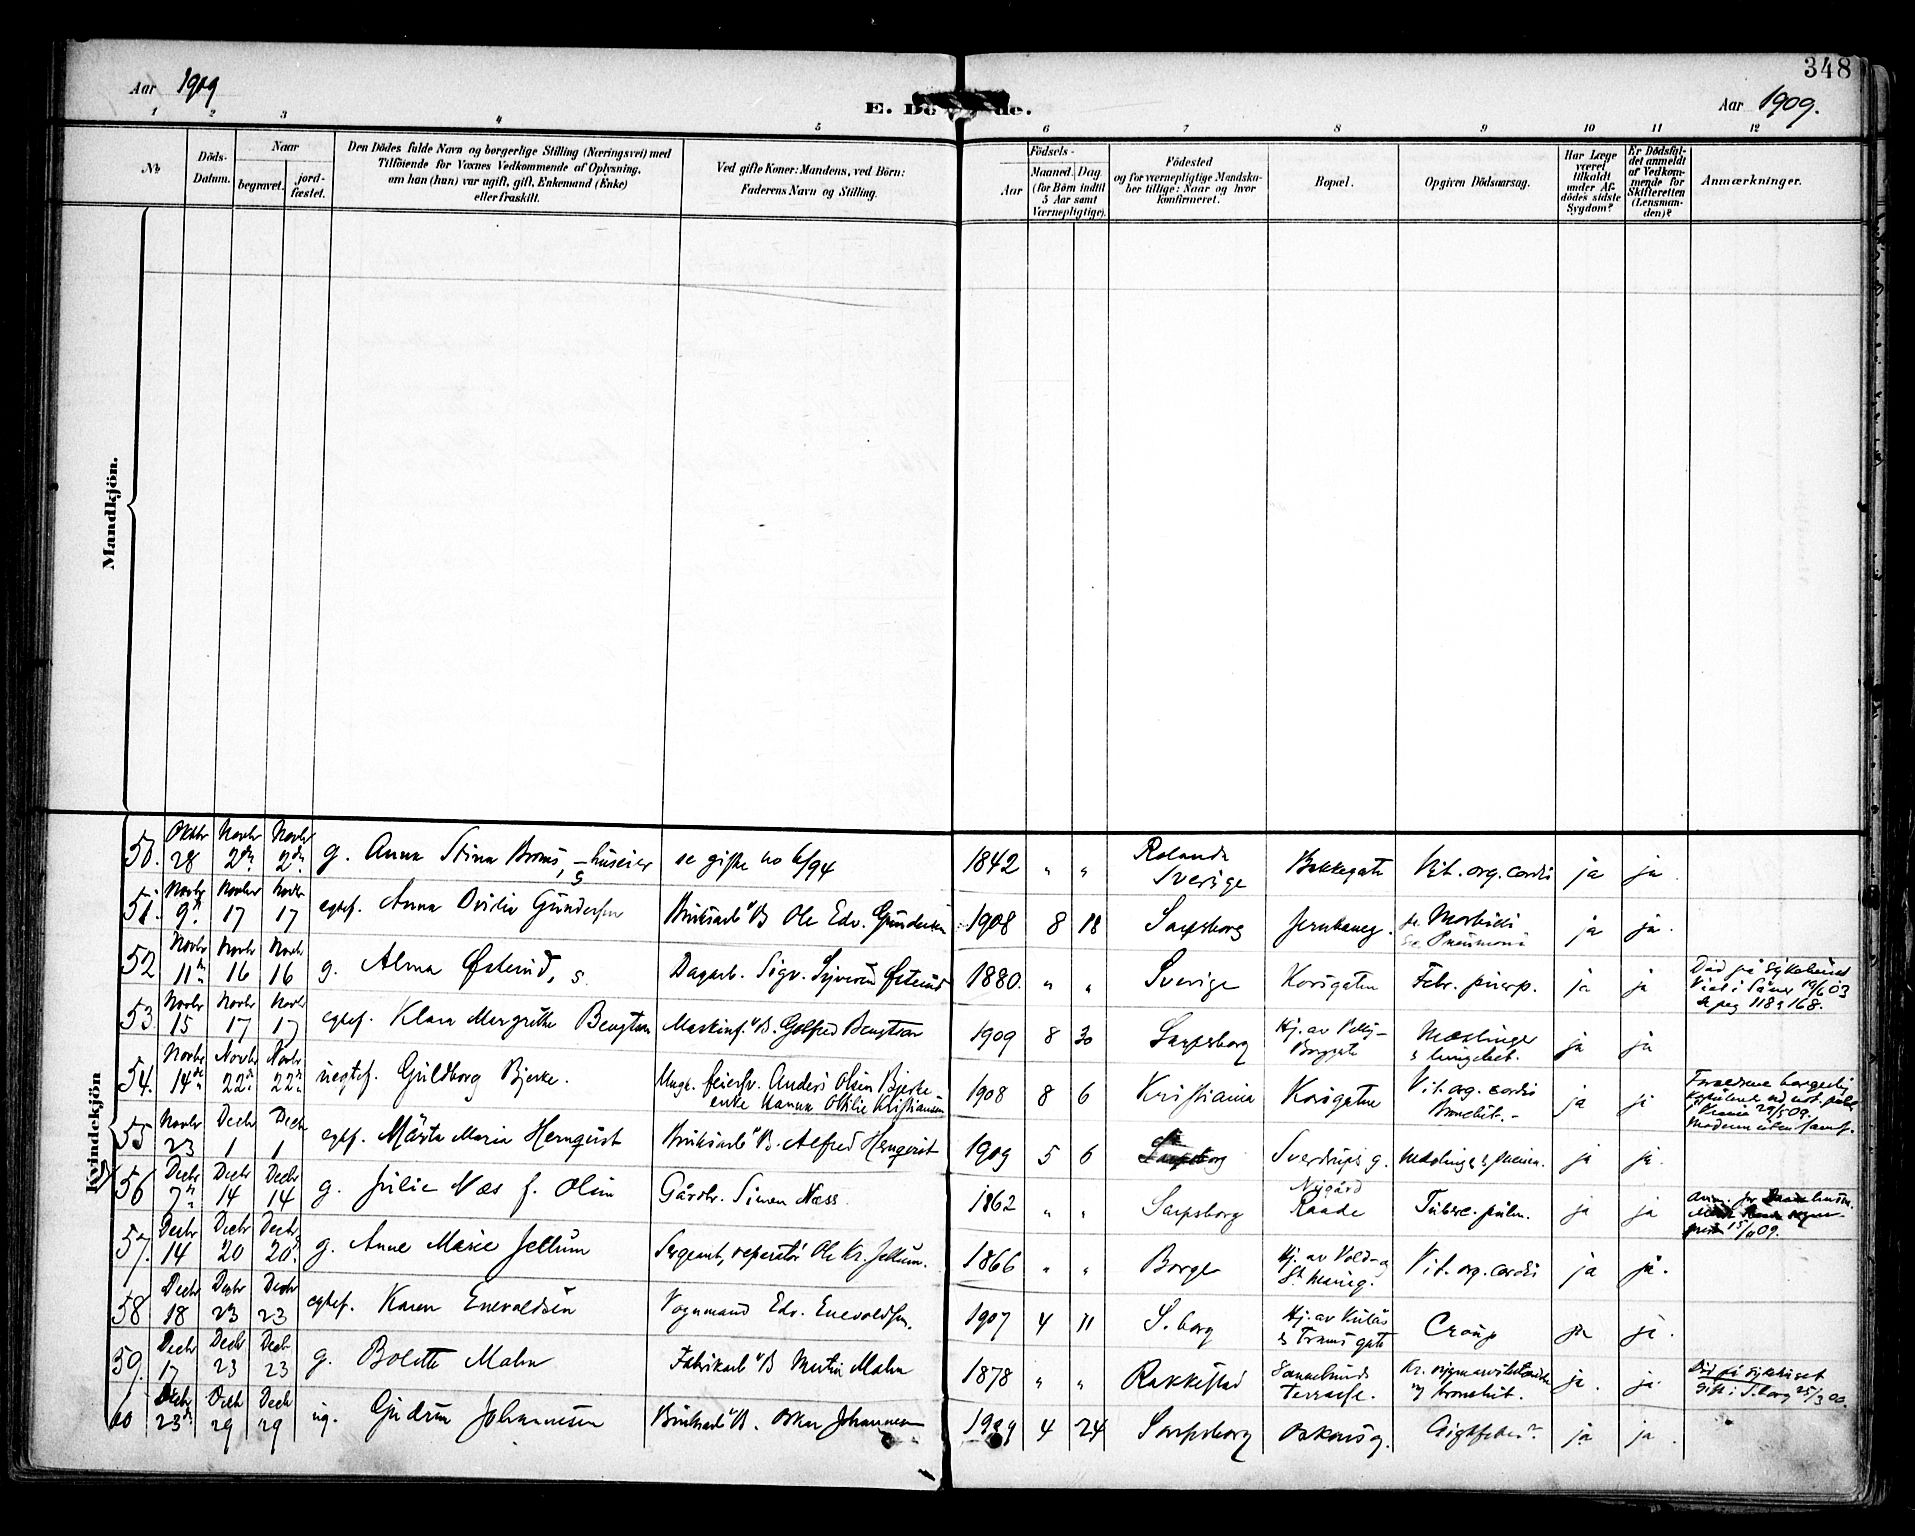 348
Aar 1909
E. Dö de.
Aar 1909.
1 2 3 4 5 6 7 8 9 10 11 12
No
Döds-
Datum.
Naar
begravet.
jord-
fæstet.
Den Dödes fulde Navn og borgerlige Stilling (Næringsvei) med
Tilföiende for Voxnes Vedkommende af Oplysning,
om han (hun) var ugift, gift, Enkemand (Enke)
eller fraskilt.
Ved gifte Koner: Mandens, ved Börn:
Faderens Navn og Stilling.
Födsels-
Aar
Maaned.
Dag.
(for Börn indtil
5 Aar samt
Værnepligtige).
Födested
og for værnepligtige Mandska-
ber tillige: Naar og hvor
konfirmeret.
Bopæl.
Opgiven Dödsaarsag.
Har Læge
været
tilkaldt
under Af-
dödes sidste
Sygdom?
Er Dödsfal-
det anmeldt
af Vedkom-
mende for
Skifteretten
(Lensman-
den)?
Anmærkninger.
Mandkjön.
Kvindekjön
50. Oktbr 28 Novbr 2den Novbr 2den g. Anna Stina Broms, huseier se gifte no 6/94 1842 " " Rolanda Sverige Bakkegata Vit. org. cordis ja ja
51. Novbr 9de Novber 17 Novbr 17 egtef. Anna Ovidia Gundersen Bruksarb Ole Edv. Gundersen 1908 8 18 Sarpsborg Jernbaneg. Morbilli Pneumoni ja ja.
52 Novbr 11te Novbr 16 Novbr 16 g. Alma Østerud, s. Dagarb. Sigv. Syverud Østerud 1880. " " Sverige Korsgaten Febr. puerp. ja ja Död på Sykehuset
Viet i Såner 19/6 03
se pag 118 168.
53 Novbr 15 Novbr 17 Novbr 17 egtef. Klara Margrethe Bengtson Maskinf. B. Golfred Bengtson 1909 8 30 Sarpsborg Hj. av Borggata Mæslinger & lungebet. ja ja
54. Novbr 14de Novbr 22de Novbr 22de uegtef. Guldborg Bjerke. Ungk. feiersv. Anders Olsen Bjerke
enke Hanna Ottilie Kristiansen 1908 8 6 Kristiania Korsgatne Vit. org. cordis bronchit. - ja ja Forældrene borgerlig
i Krania 29/5 09.
55 Novbr 23 Decbr 1 Decbr 1 egtef. Märta Maria Hernquist Bruksarb B. Alfred Hernqvist 1909 5 6 Sarpsborg Sverdrups g. Mæslinger & pneum. ja ja.
56 Decbr 7de Decbr 14 Decbr 14 g. Julie Næs f. Olsen Gårdbr. Simen Næss. 1862 " " Sarpsborg Nygård Raade Tuberc. pulm. ja ja 15/11 09.
57. Decbr 14 Decbr 20 Decbr 20. g. Anne Marie Jellum Sergeant, reperatör Ole Kr. Jellum. 1866 " " Borge Hj. av Vold- og St. Marieg. Vit. org. cordis ja ja.
58 Decbr 18 Decbr 23 Decbr 23 egtef. Karen Enevoldsen Vognmand Edv. Enevoldsen. 1907 4 11 S.borg Hj. av Kulås & Tromsgata Croup ja ja.
59. Decbr 17 Decbr 23 Decbr 23 g. Bolette Malm Fabrikarb B Martin Malm 1878 " " Rakkestad Sannesunds Terrasse. Kr. og bronchit. ja. ja Död på sykehuset
Gift i S.borg 25/3 00.
60 Decbr 23de Decbr 29 Decbr 29 ug. Gudrun Johannesen Bruksarb B. Oskar Johannesen 1909 4 24 Sarpsborg Oskarsg. Gigtfeber ja ja.